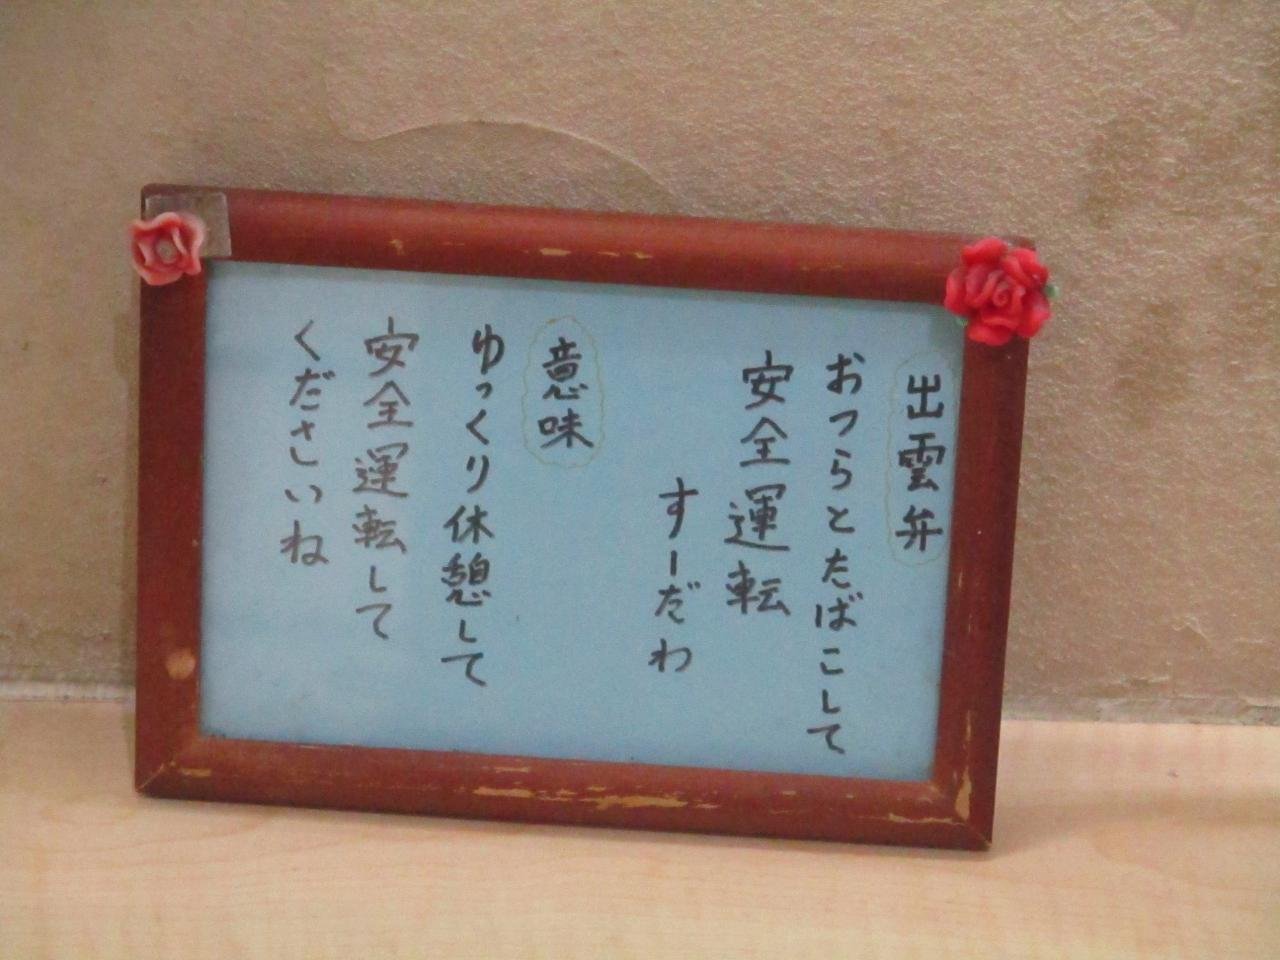 出雲弁
おつらとたばこして
安全運転
すーだわ
意味
ゆっくり休憩して
安全運転して
くださいね